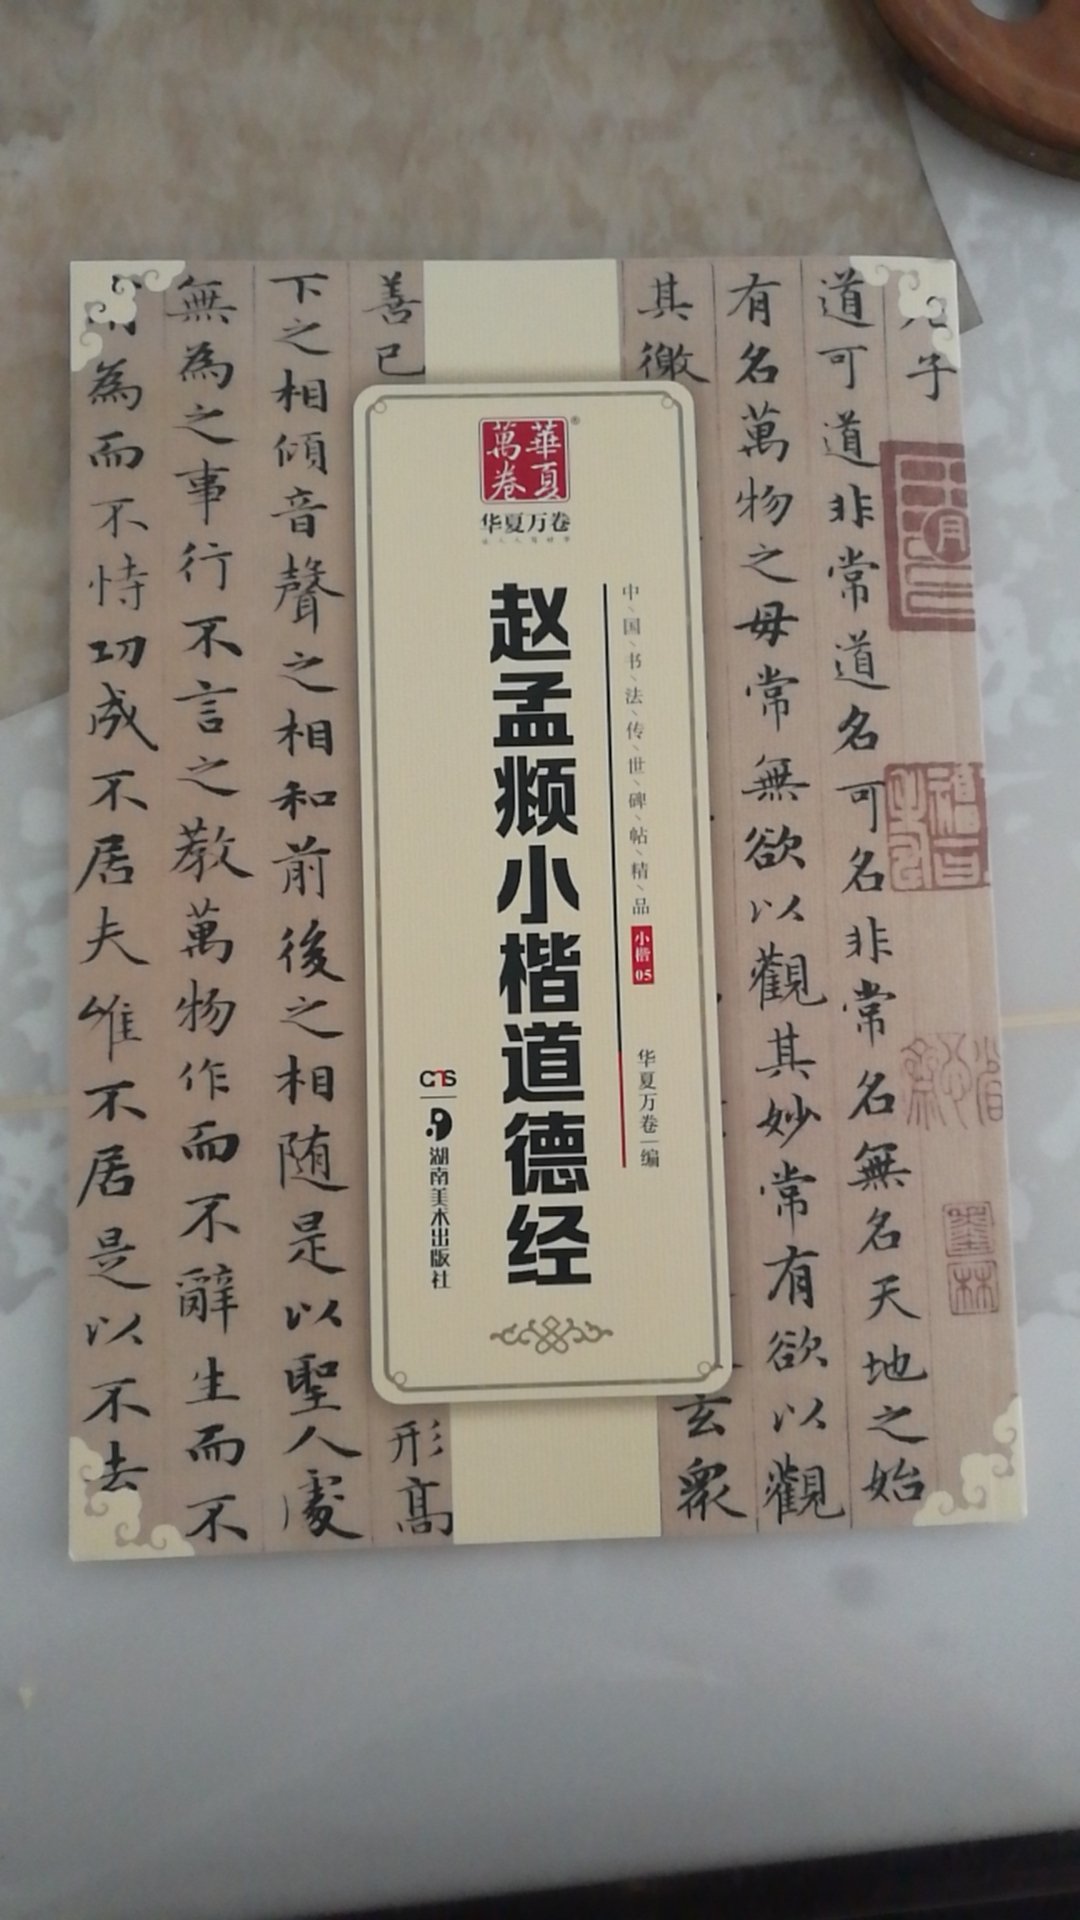 子
道可道非常道名可名非常名無名天地之始
有名萬物之母常無欲以觀其妙常有欲以觀
其徼
玄衆
中国书法传世碑帖精品
小楷05
华夏万卷 编
華夏
萬卷
华夏万卷
赵孟頫小楷道德经
CNS
湖南美术出版社
善已
形高
下之相傾音聲之相和前後之相随是以聖人處
無為之事行不言之教萬物作而不辭生而不
為而不恃功成不居夫惟不居是以不去
墨林